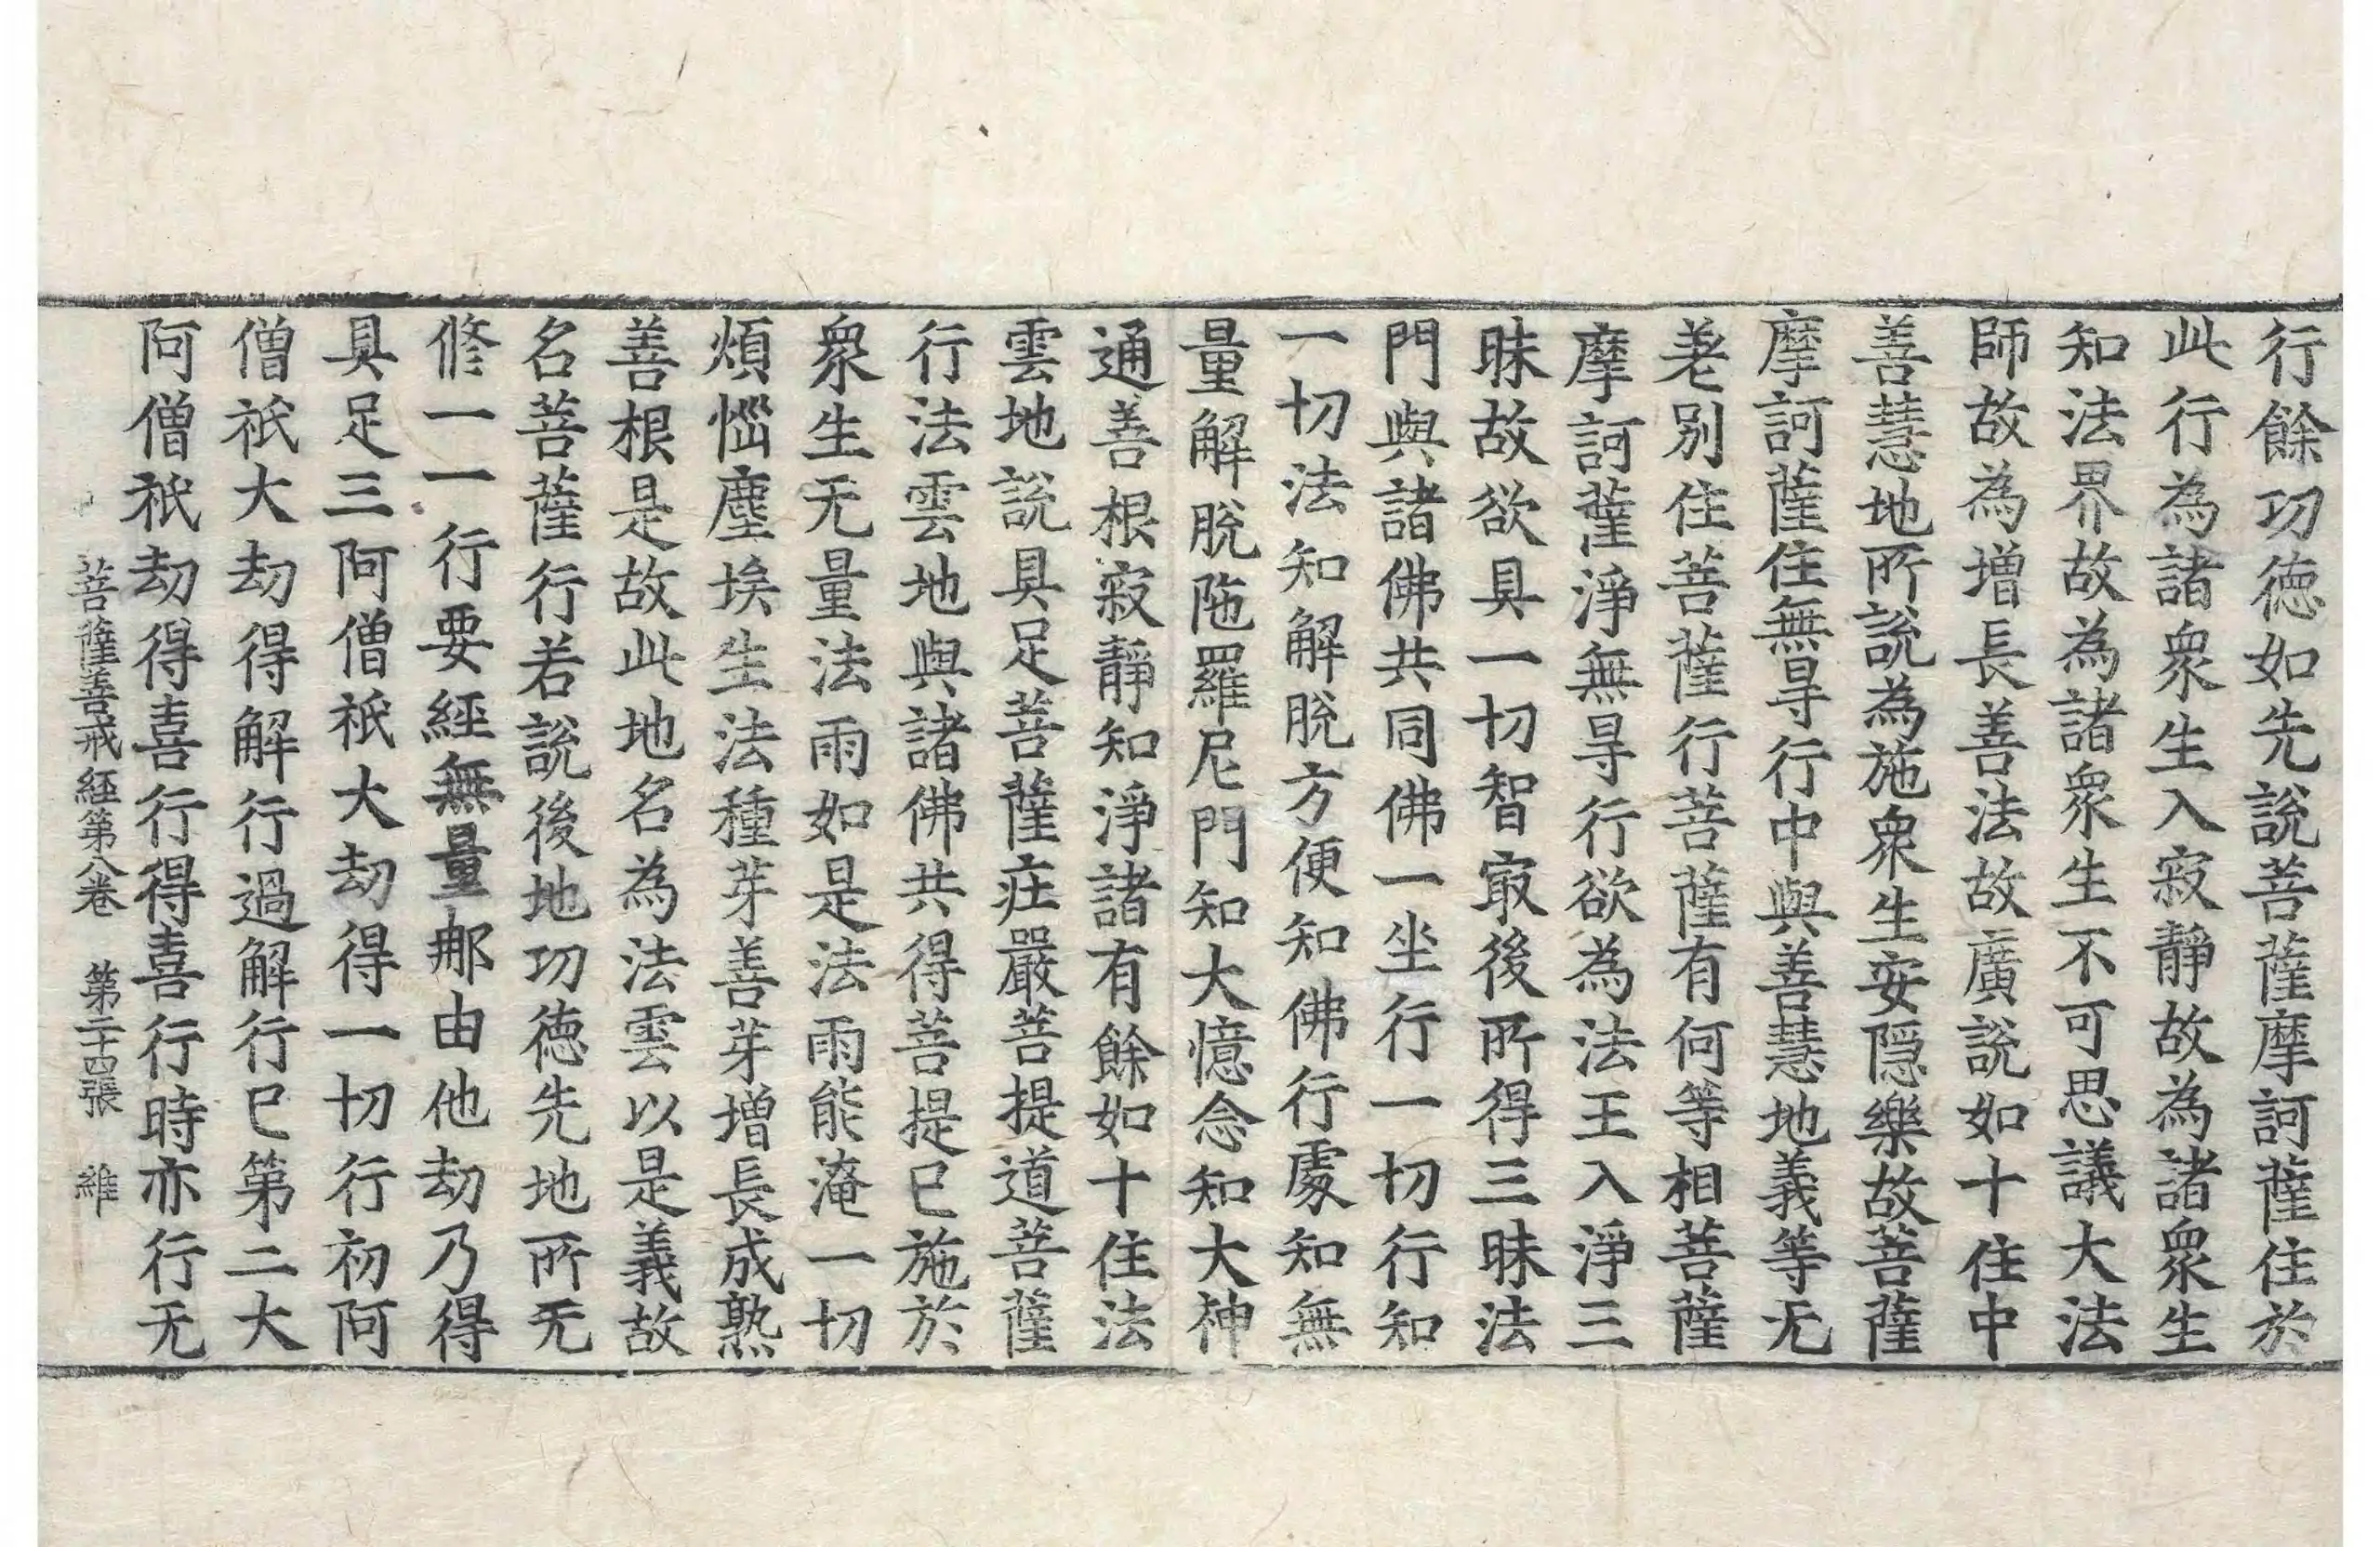 行餘功徳如先說菩薩摩訶薩住於
此行為諸衆生入寂靜故為諸衆生
知法界故為諸衆生不可思議大法
師故為增長善法故廣說如十住中
善慧地所說為施衆生安隠樂故菩薩
摩訶薩住無㝵行中與善慧地義等无
差別住菩薩行菩薩有何等相菩薩
摩訶薩淨無㝵行欲為法王入淨三
昧故欲具一切智㝡後所得三昧法
門與諸佛共同佛一坐行一切行知
一切法知解脫方便知佛行處知無
量解脫陁羅尼門知大憶念知大神
通善根寂靜知淨諸有餘如十住法
雲地說具足菩薩莊嚴菩提道菩薩
行法雲地與諸佛共得菩提已施於
衆生无量法雨如是法雨能淹一切
煩惱塵埃生法種芽善芽增長成熟
善根是故此地名為法雲以是義故
名菩薩行若說後地功徳先地所无
修一一行要經無量那由他劫乃得
具足三阿僧祇大劫得一切行初阿
僧祇大劫得解行過解行已第二大
阿僧祇劫得喜行得喜行時亦行无
菩薩善戒經第八卷 第二十四張 維